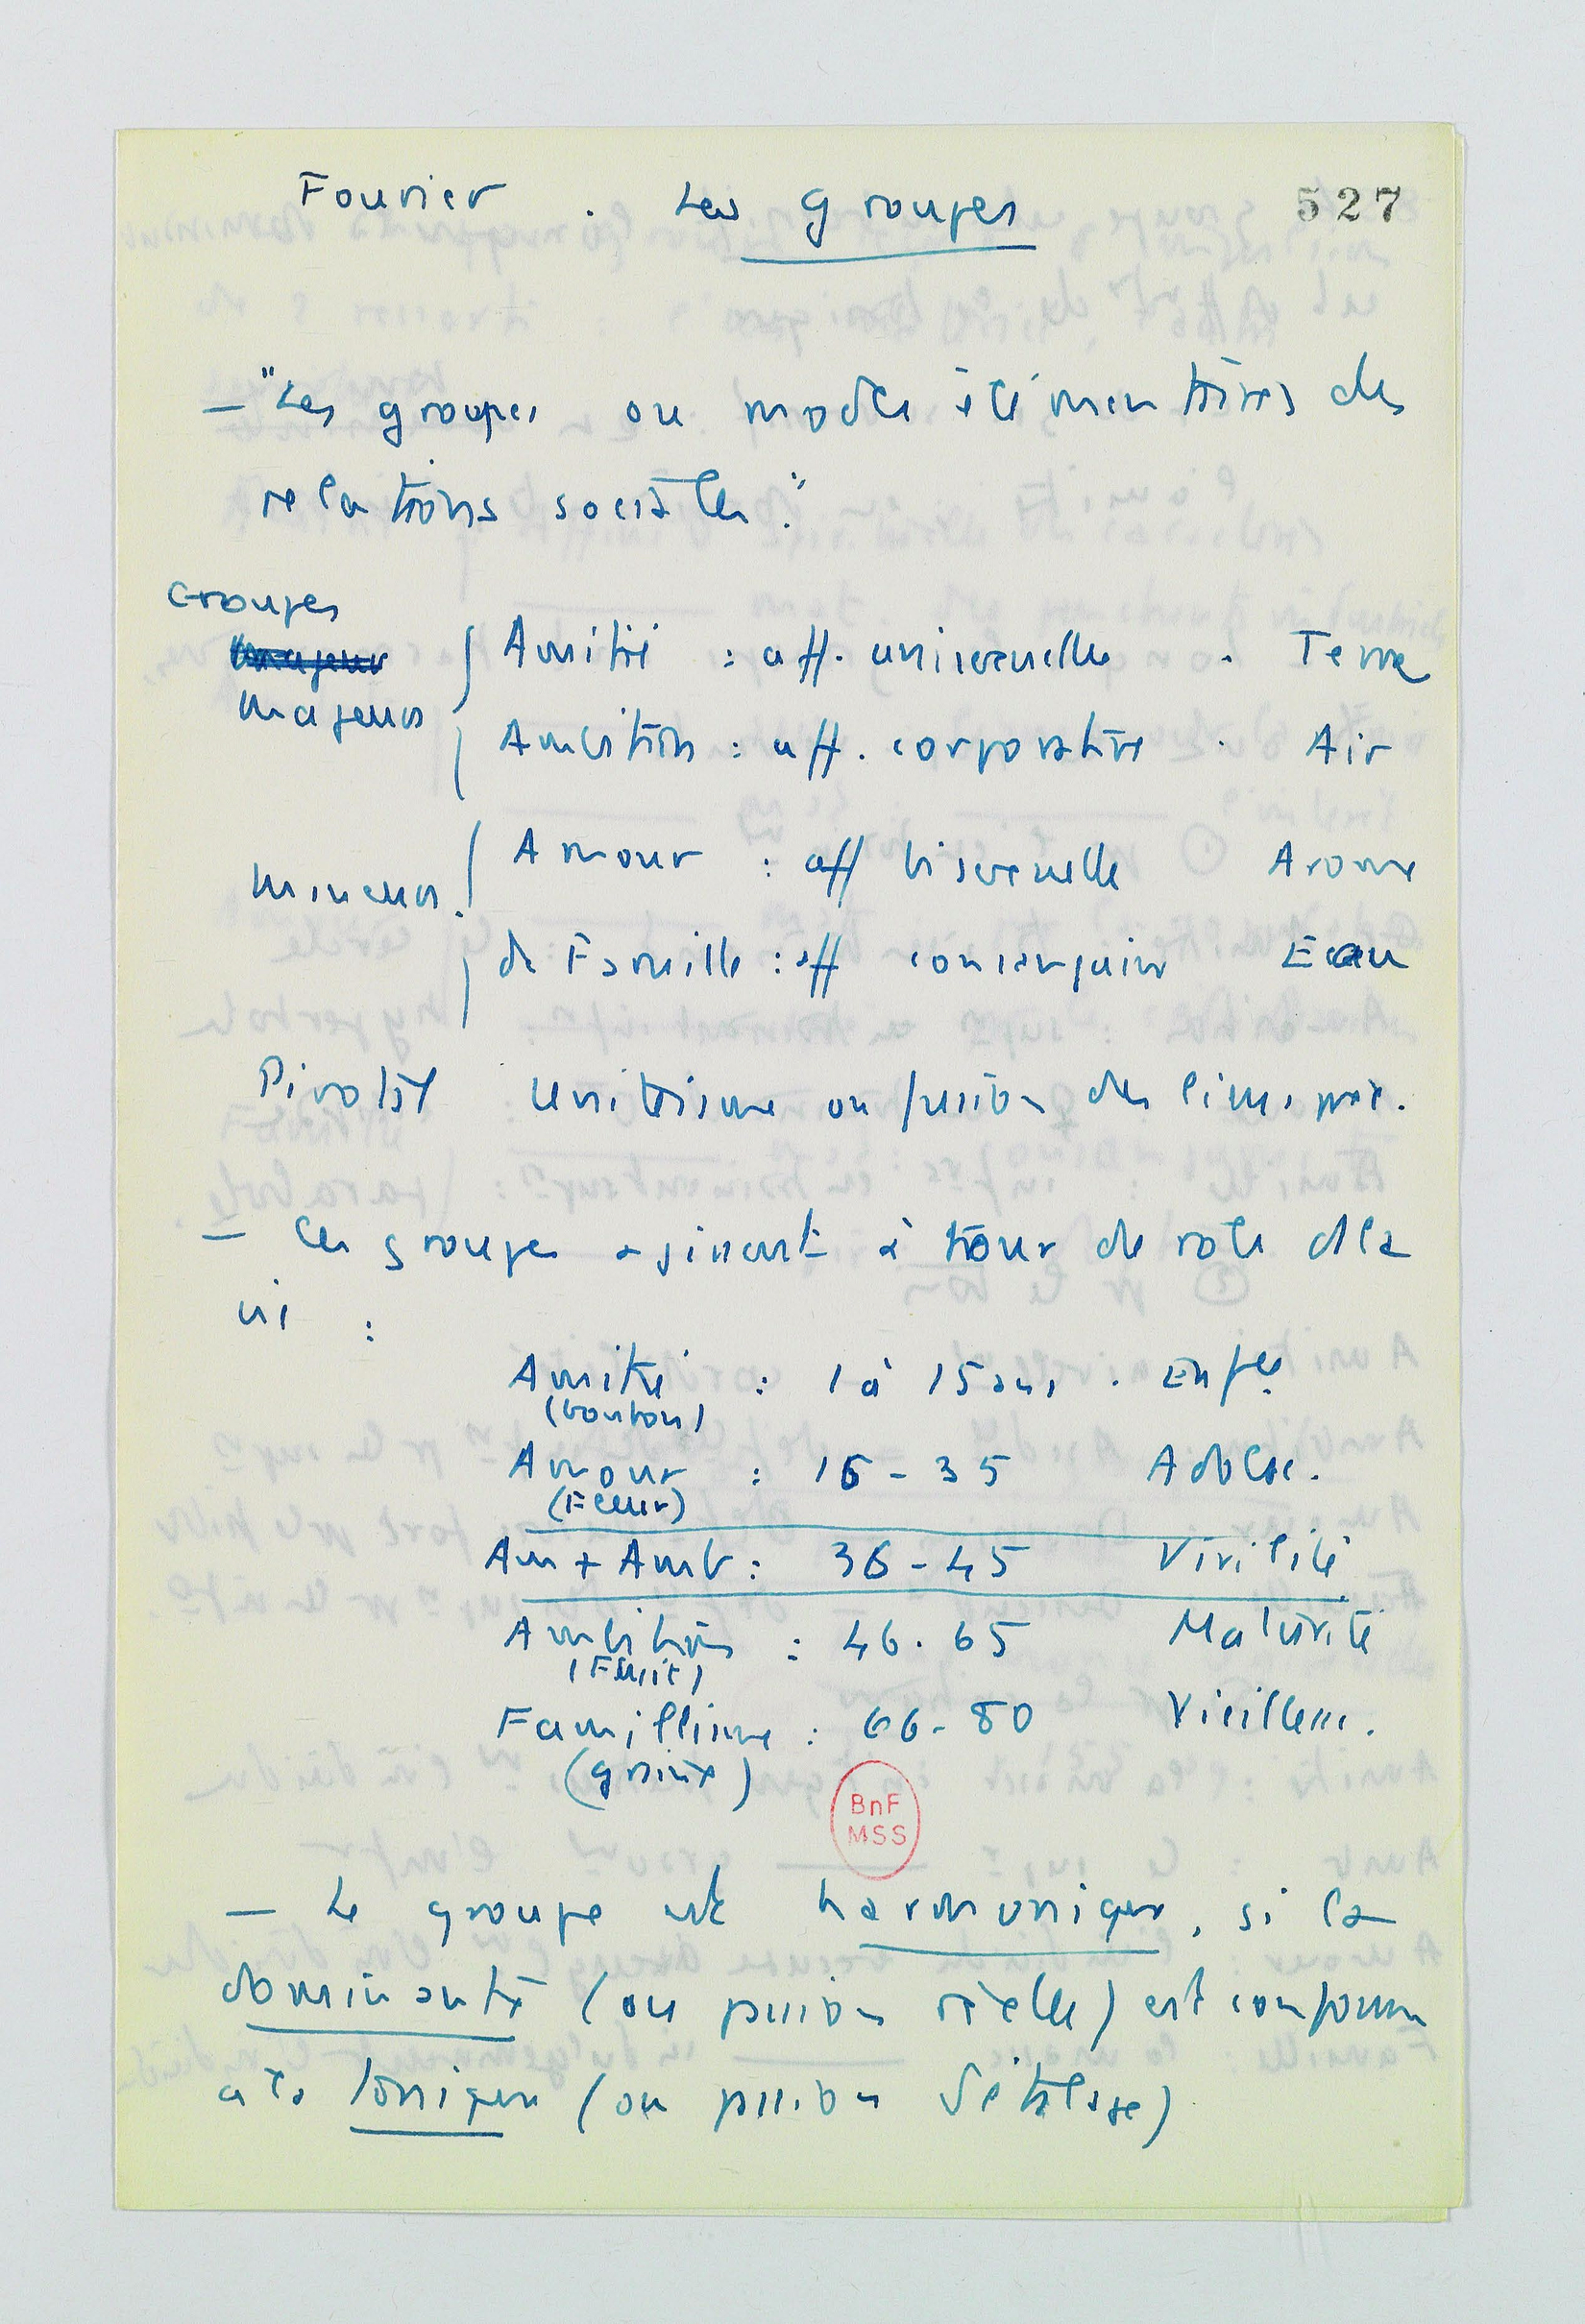 Fourier . Les groupes 527
— "Les groupes ou modes élémentaires des
relations sociétaires."
Groupes
majeurs
majeurs
Amitié : aff. unisexuelle . Terre
Ambition : aff. corporative . Air
mineurs
Amour : aff bisexuelle Arome
de Famille : aff consanguine Eau
Pivotal Unitéisme ou fusion des liens
— Ces groupes agissent à tour de role ds la
vie :
Amitié : 1 à 15 ans . Enfce
(bouton)
Amour : 16 - 35 Adolesc.
(Fleur)
Am + Amb : 36 - 45 Virilité
Ambition : 46 - 65 Maturité
(Fruit)
Famillisme : 66 - 80 Vieillesse.
(graine)
BnF
MSS
— Le groupe est harmonique, si la
dominante (ou passion réelle) est conforme
à la tonique (ou passion d'étalage)